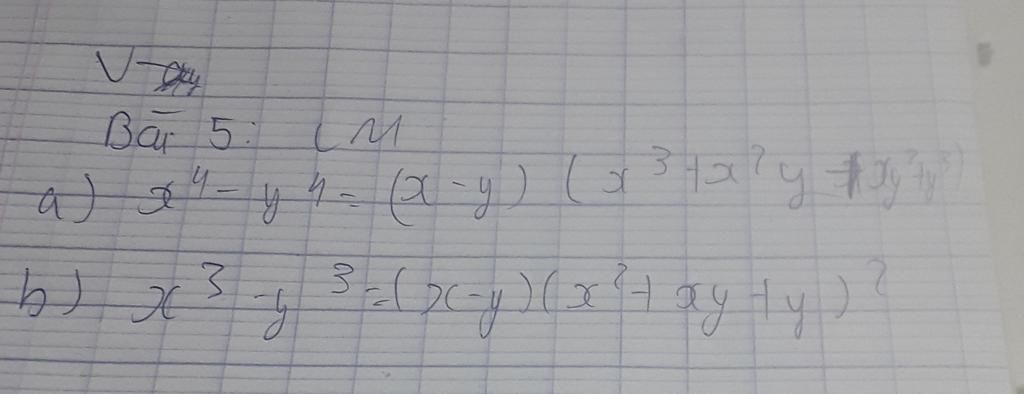 V
Bài 5: CM
a) x⁴ - y⁴ = (x - y) (x³ + x²y + xy² + y³)
b) x³ - y³ = (x - y) (x² + xy + y)²